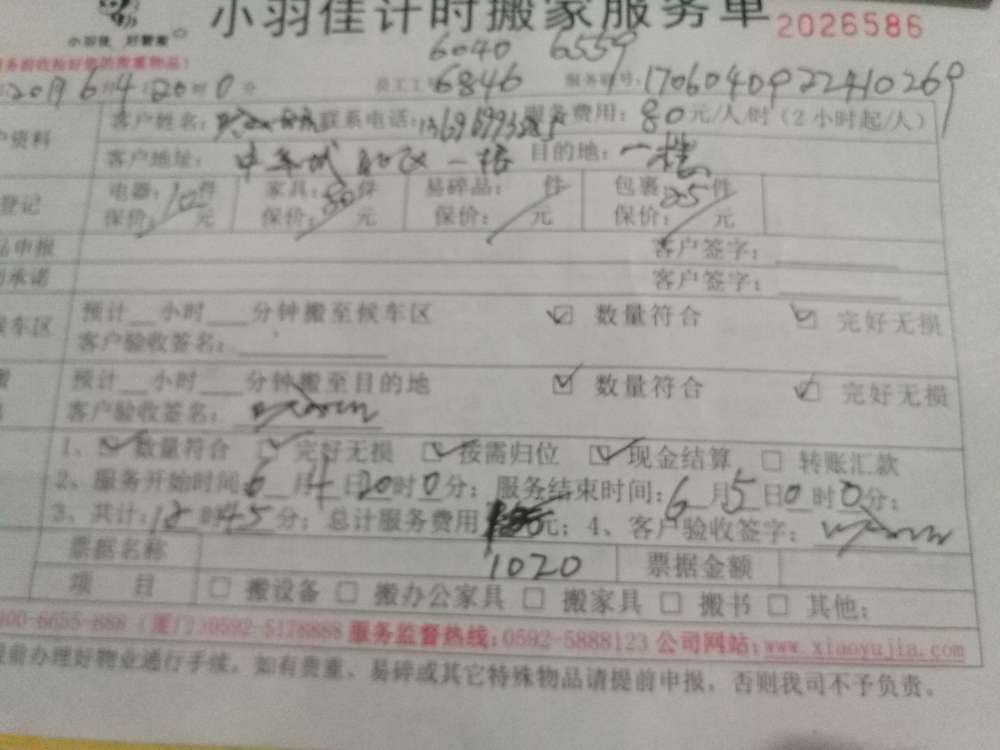 小羽佳计时搬家服务单 2026586
小羽佳 好管家
6040 6559
务前收拾好您的贵重物品!
6月4日20时0分 员工工号 6846 服务单号:17060409224410269
户资料 客户姓名: 联系电话: 服务费用:80元/人/时(2小时起/人)
客户地址: 一楼 目的地:一楼
登记 电器: 件 家具: 件 易碎品: 件 包裹:25件
保价: 元 保价: 元 保价: 元 保价: 元
品申报 客户签字:
承诺 客户签字:
候车区 预计__小时___分钟搬至候车区 ☑ 数量符合 ☑ 完好无损
客户验收签名:
预计__小时___分钟搬至目的地 ☑ 数量符合 ☑ 完好无损
客户验收签名:
1、☑数量符合 ☑完好无损 ☑按需归位 ☑现金结算, □ 转账汇款
2、服务开始时间:6月4日20时0分;服务结束时间:6月5日0时0分;
3、共计:12时45分;总计服务费用 元;4、客户验收签字:
票据名称 1020 票据金额
项 目 □ 搬设备 □ 搬办公家具 □ 搬家具 □ 搬书 □ 其他:
00-6655-888(厦门)0592-5178888 服务监督热线:0592-5888123 公司网站:www.xiaoyujia.com
提前办理好物业通行手续,如有贵重、易碎或其它特殊物品请提前申报,否则我司不予负责。